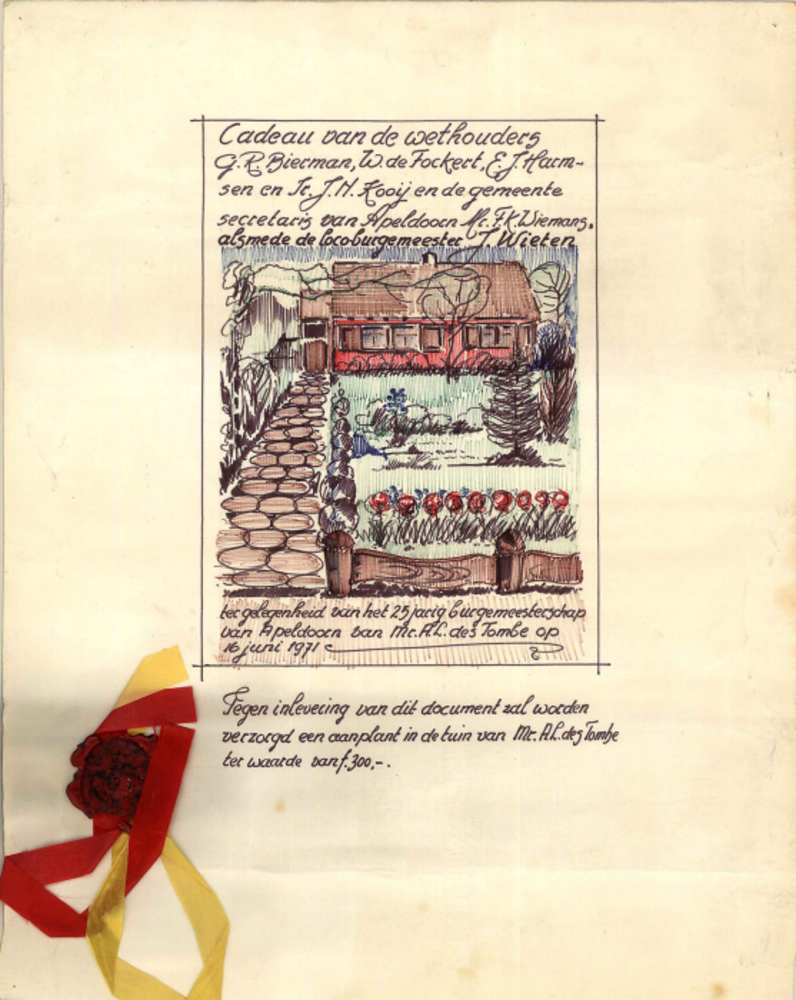 Cadeau van de wethouders
G.R. Bierman, W. de Fockert, E.J. Harm-
sen en Ir. J.H. Kooij en de gemeente
secretaris van Apeldoorn Mr. F.K. Wiemans,
alsmede de loco-burgemeester J. Wieten
ter gelegenheid van het 25 jarig burgemeesterschap
van Apeldoorn van Mr. A.L. des Tombe op
16 juni 1971
Tegen inlevering van dit document zal worden
verzorgd een aanplant in de tuin van Mr. A.L. des Tombe
ter waarde van f. 300,-.